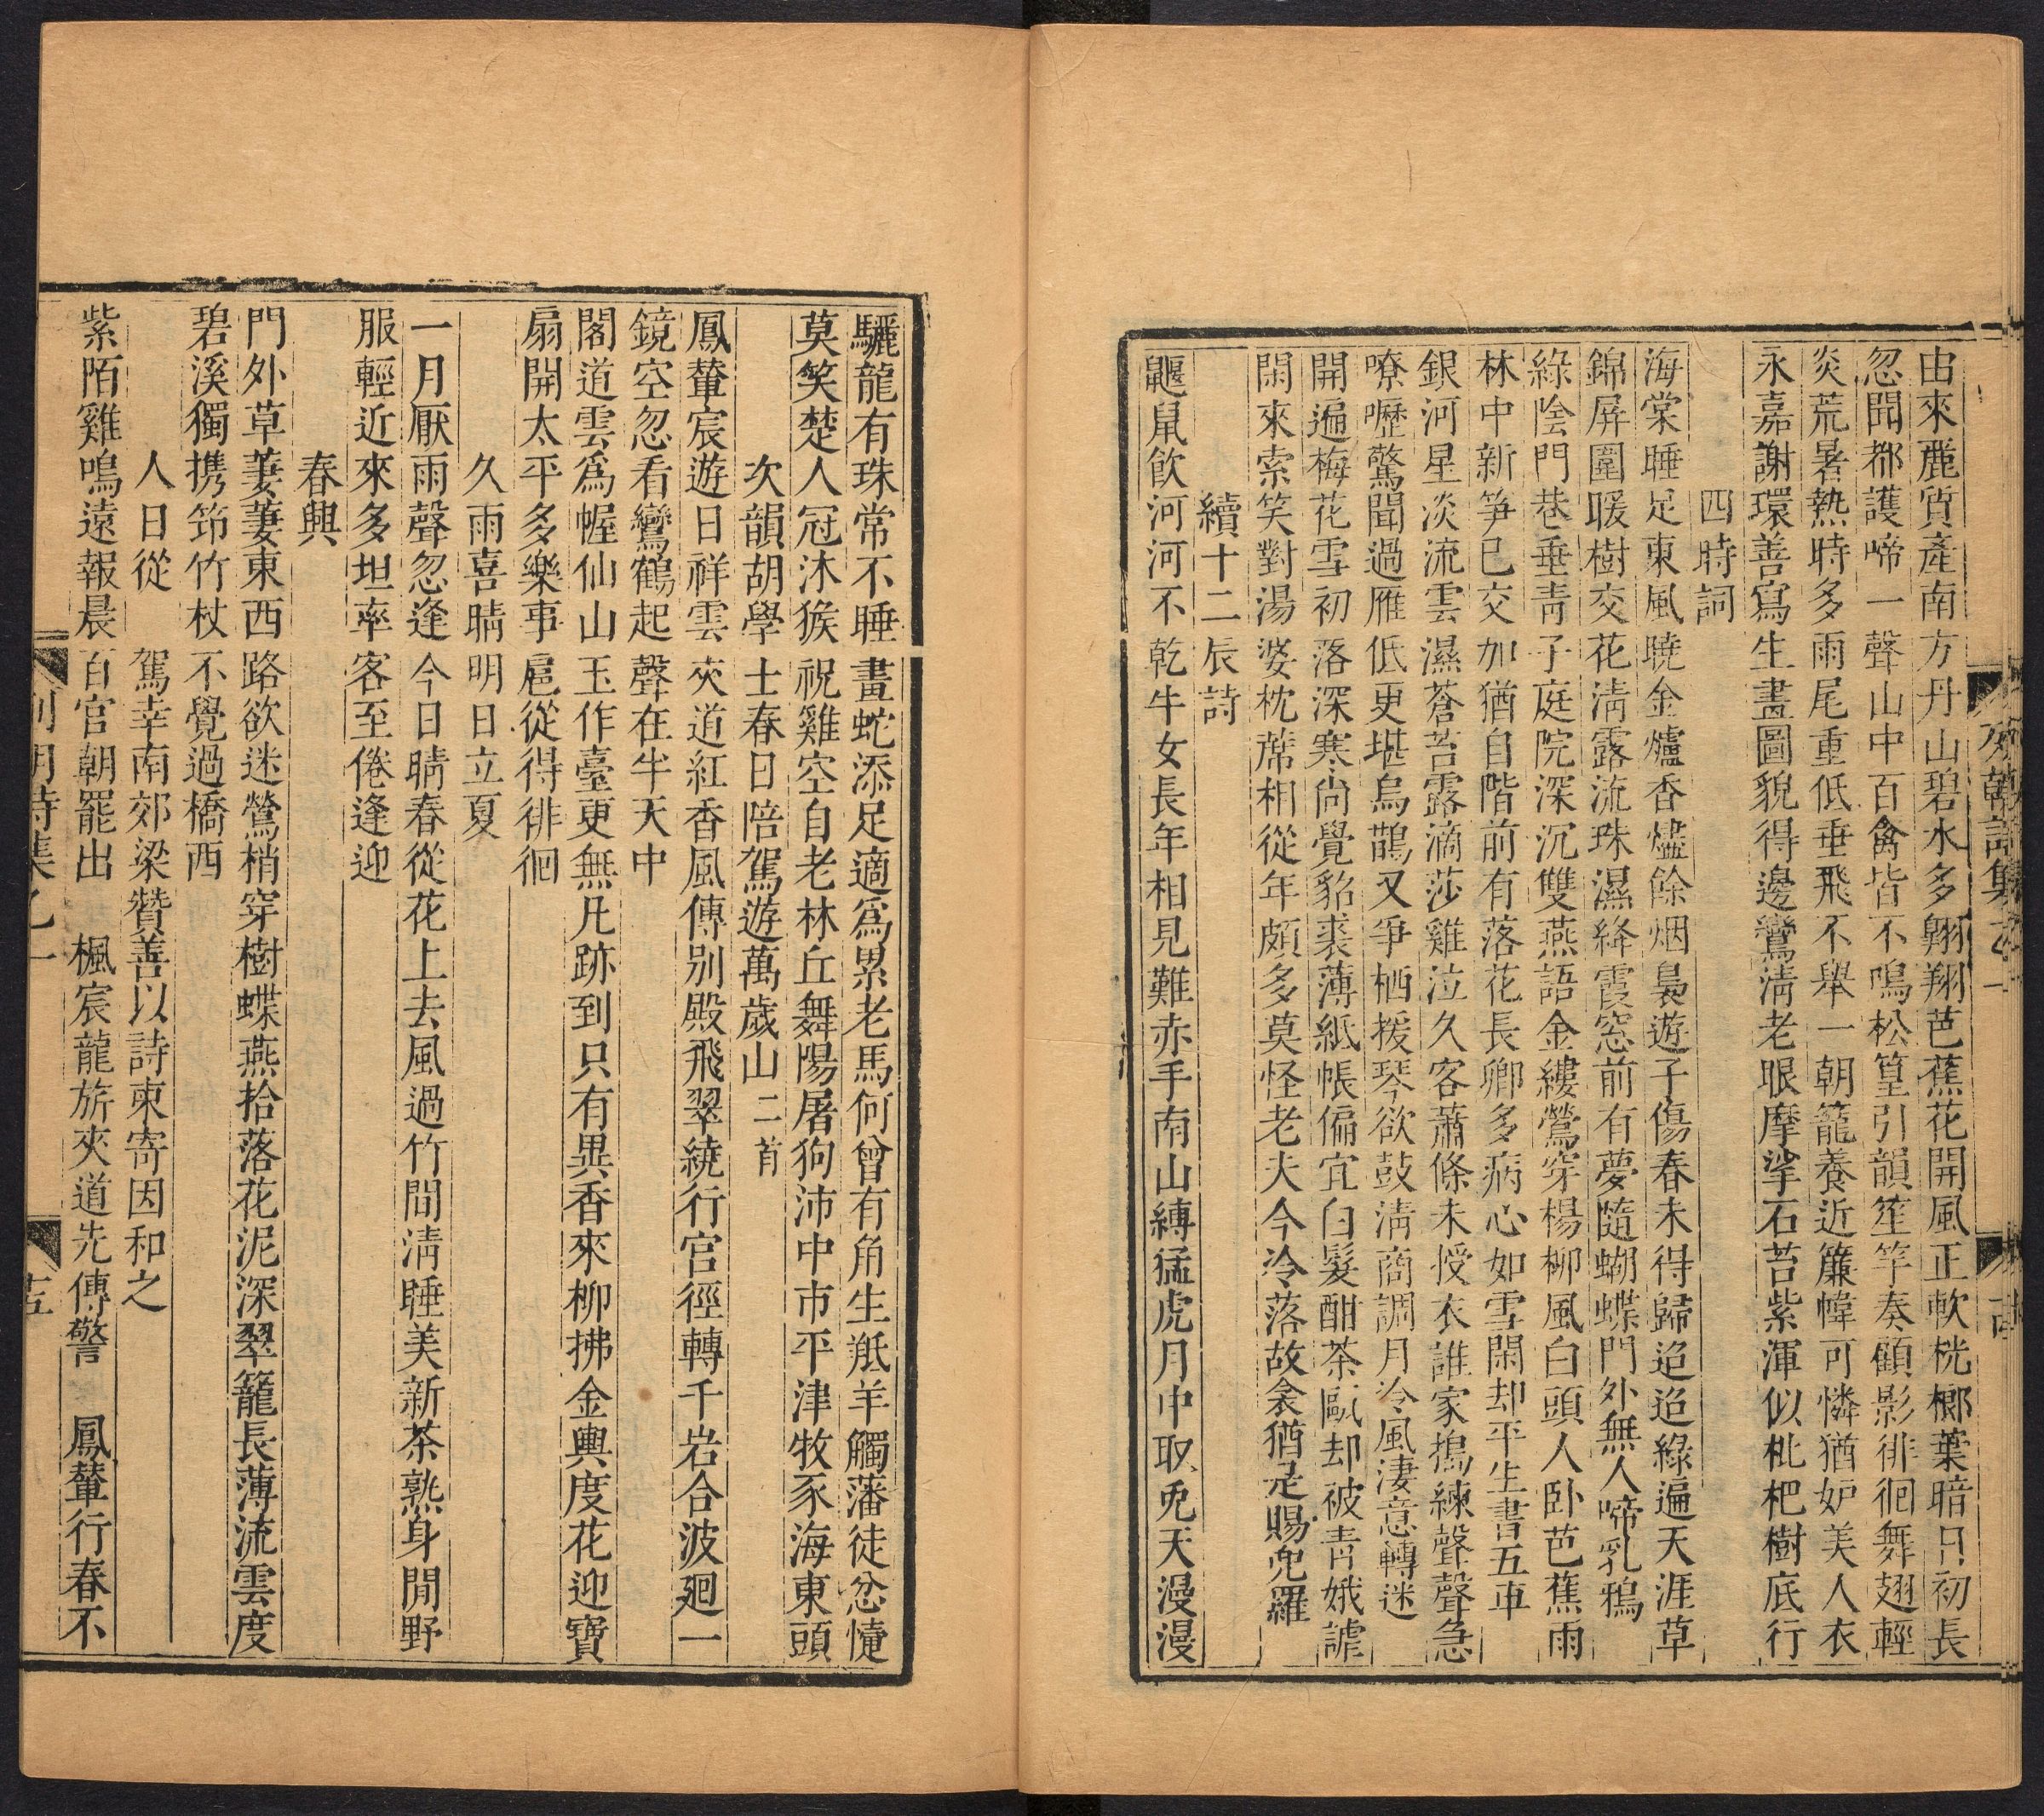 由來麗質產南方丹山碧水多翺翔芭蕉花開風正軟桄榔葉暗日初長
忽聞都護啼一聲山中百禽皆不鳴松篁引韻笙竽奏顧影徘徊舞翅輕
炎荒暑熱時多雨尾重低垂飛不舉一朝籠養近簾幃可憐猶妒美人衣
永嘉謝環善寫生畫圖貌得邊鸞淸老眼摩挲石苔紫渾似枇杷樹底行
四時詞
海棠睡足東風曉金爐香燼餘烟裊遊子傷春未得歸迢迢綠遍天涯草
錦屏圍暖樹交花淸露流珠濕絳霞窓前有夢隨蝴蝶門外無人啼乳鴉
綠陰門巷垂靑子庭院深沉雙燕語金縷鶯穿楊柳風白頭人卧芭蕉雨
林中新笋已交加猶自階前有落花長卿多病心如雪閑却平生書五車
銀河星淡流雲濕蒼苔露滴莎雞泣久客蕭條未授衣誰家搗練聲聲急
嘹嚦驚聞過雁低更堪烏鵲又爭栖援琴欲鼓淸商調月冷風淒意轉迷
開遍梅花雪初落深寒尙覺貂裘薄紙帳偏宜白髮酣茶甌却被靑娥謔
閑來索笑對湯婆枕蓆相從年頗多莫怪老夫今冷落故衾猶是賜兜羅
續十二辰詩
鼴鼠飮河河不乾牛女長年相見難赤手南山縛猛虎月中取兎天漫漫
驪龍有珠常不睡畫蛇添足適爲累老馬何曾有角生羝羊觸藩徒忿懥
莫笑楚人冠沐猴祝雞空自老林丘舞陽屠狗沛中市平津牧豕海東頭
次韻胡學士春日陪駕遊萬歲山二首
鳳輦宸遊日祥雲夾道紅香風傳別殿飛翠繞行宮徑轉千岩合波廻一
鏡空忽看鸞鶴起聲在半天中
閣道雲爲幄仙山玉作臺更無凡跡到只有異香來柳拂金輿度花迎寶
扇開太平多樂事扈從得徘徊
久雨喜睛明日立夏
一月厭雨聲忽逢今日睛春從花上去風過竹間淸睡美新茶熟身閒野
服輕近來多坦率客至倦逢迎
春興
門外草萋萋東西路欲迷鶯梢穿樹蝶燕拾落花泥深翠籠長薄流雲度
碧溪獨携筇竹杖不覺過橋西
人日從　駕幸南郊梁贊善以詩柬寄因和之
紫陌雞鳴遠報晨百官朝罷出　楓宸龍旂夾道先傳警　鳳輦行春不